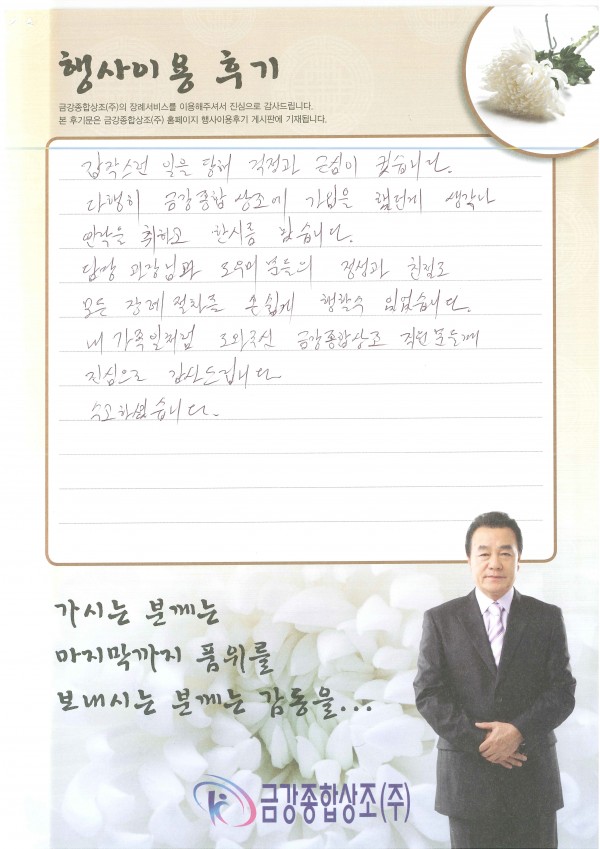 행사이용 후기
금강종합상조(주)의 장례서비스를 이용해주셔서 진심으로 감사드립니다.
본 후기문은 금강종합상조(주) 홈페이지 행사이용후기 게시판에 기재됩니다.
갑작스런 일을 당해 걱정과 근심이 컸습니다.
다행히 금강종합상조에 가입을 했던게 생각나
연락을 취하고 한시름 놨습니다.
담당 과장님과 도우미분들의 정성과 친절로
모든 장례 절차를 손쉽게 행할수 있었습니다.
내 가족일처럼 도와주신 금강종합상조 직원분들께
진심으로 감사드립니다.
수고하셨습니다.
가시는 분께는
마지막까지 품위를
보내시는 분께는 감동을...
금강종합상조(주)